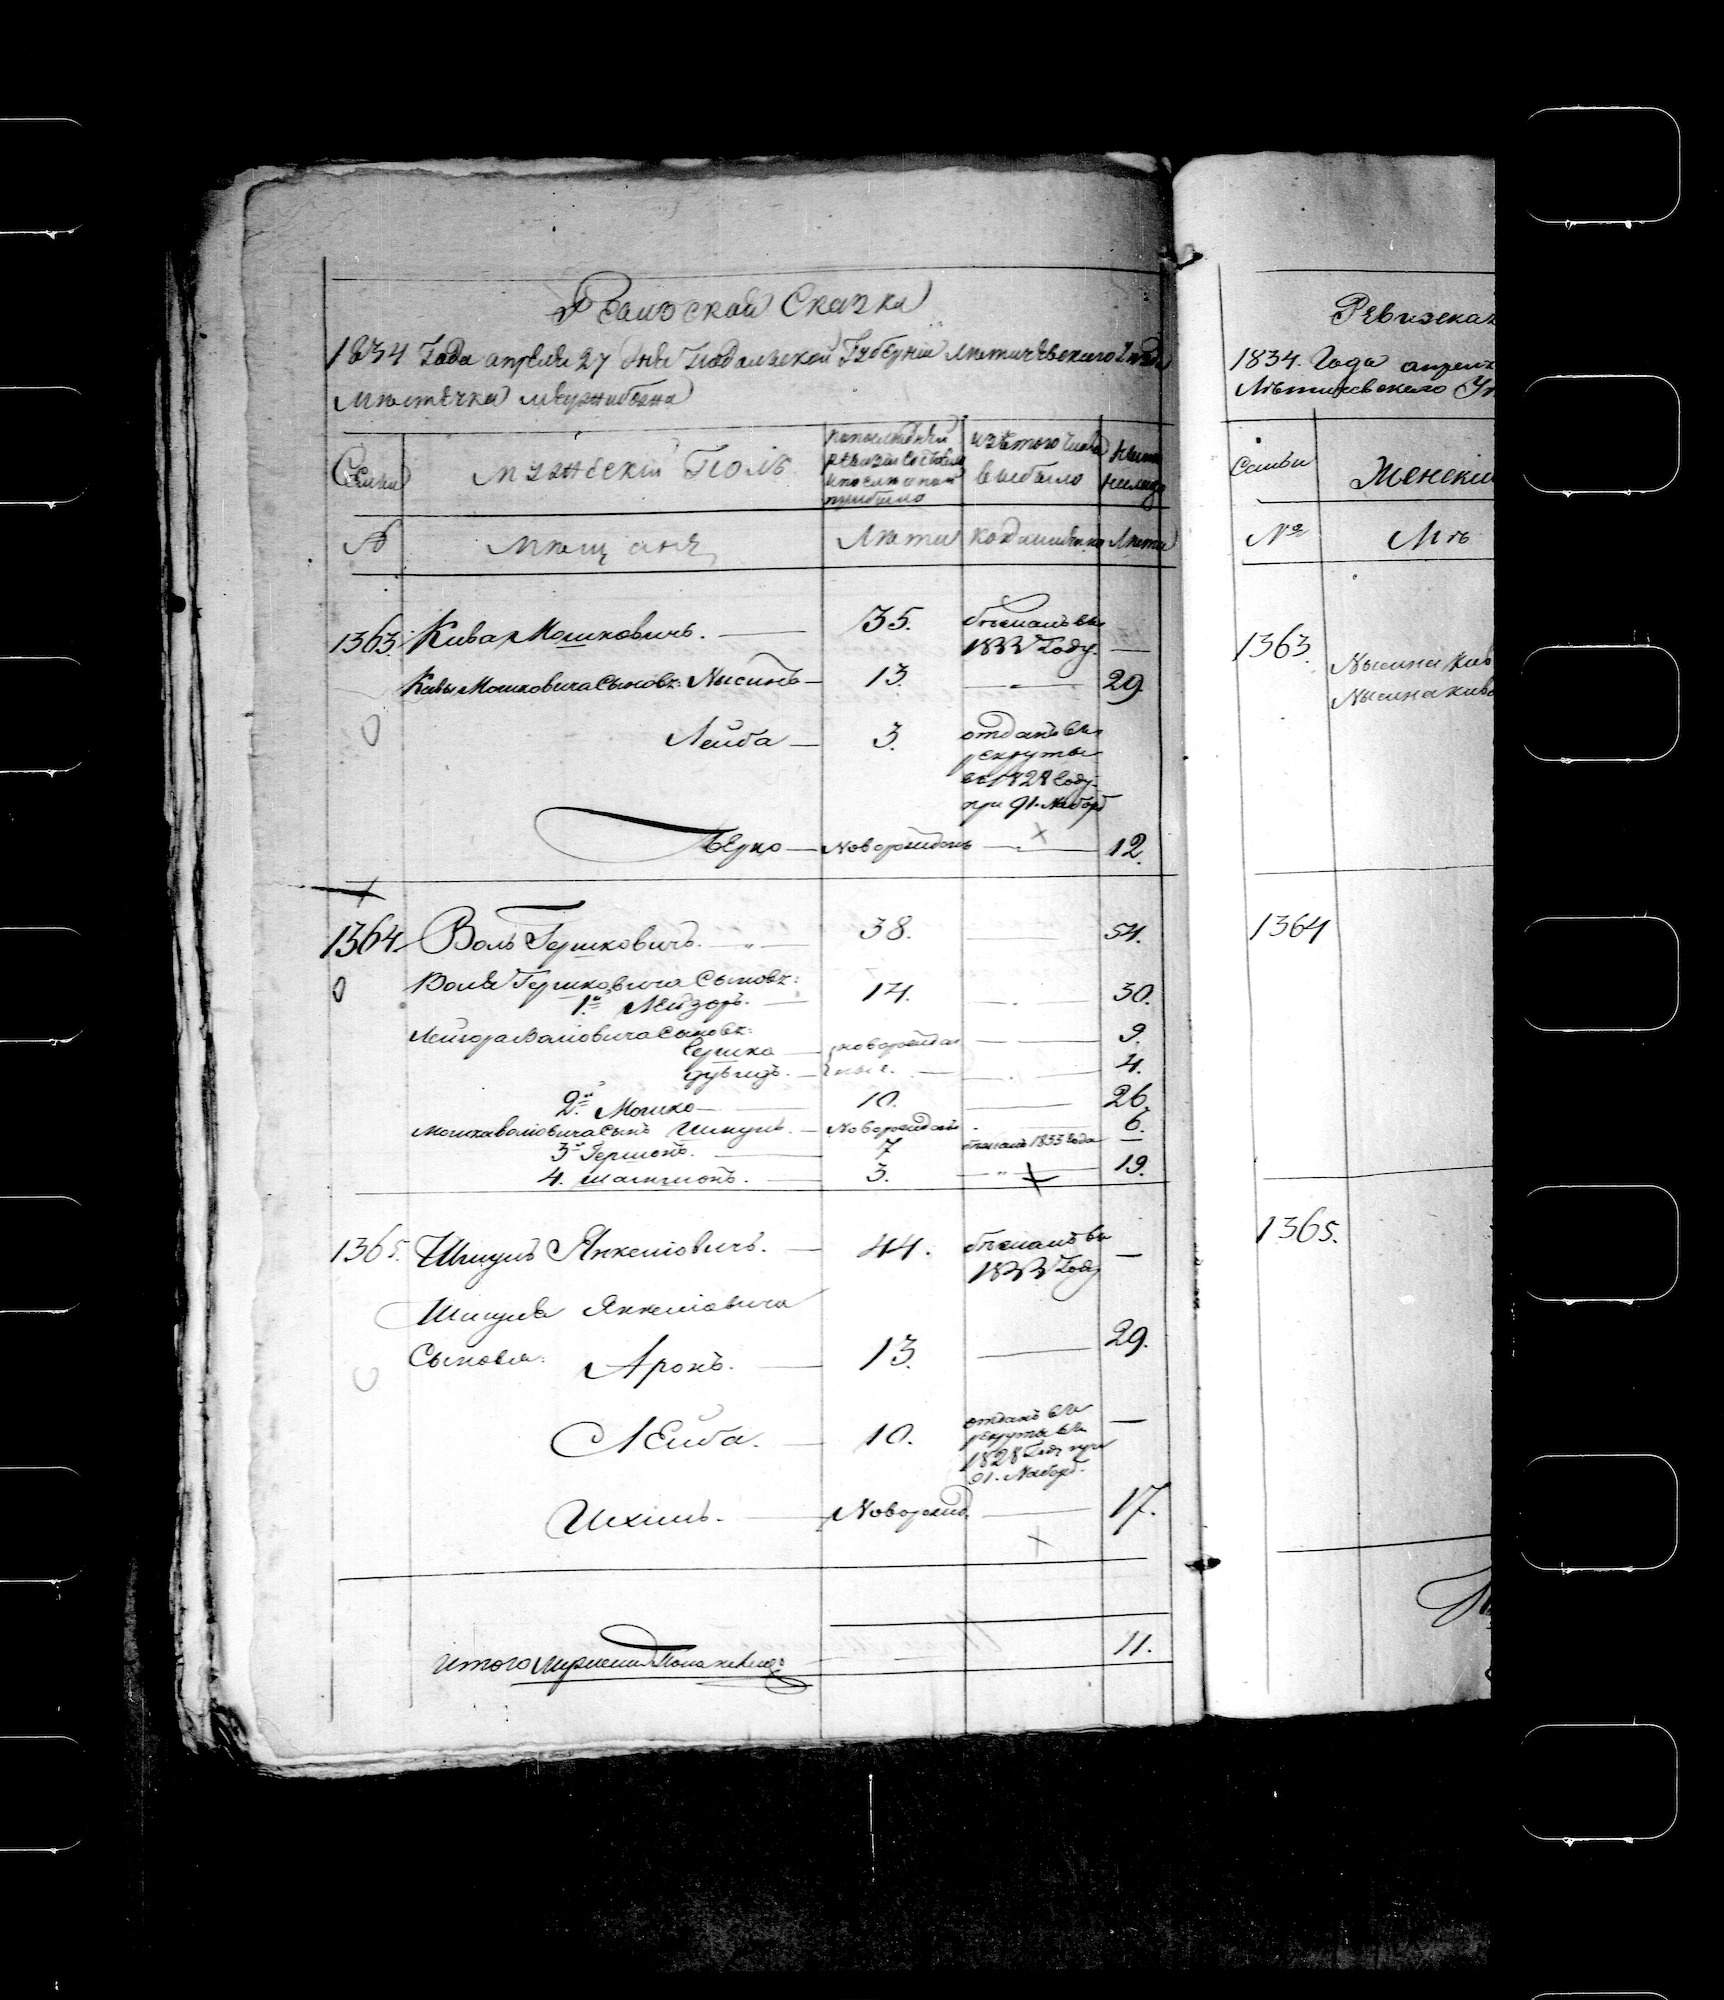 Ревизская Сказка
1834 Года апреля 27 дня Подольской Губерніи Литичевскаго Уезда
Мѣстечка Межибожа
Семьи
Мужескій Полъ
по последней
ревизіи состояло
и после оной
прибыло
изъ того числа
выбыло
Ныне
на лицо
№
Мѣщане
Лѣта
когда именно
Лѣта
1363. Кива Мошковичъ. 35. бѣжалъ въ
1833 Году. —
Кивы Мошковича Сыновья: Нысинъ — 13. — 29.
Лейба — 3. отданъ въ
рекруты
въ 1828 Году
при 91. Наборѣ
Берко — Новорожденъ — 12.
1364. Воль Гершковичъ. 38. 54.
Воля Гершковича Сыновья:
1й Лейзоръ. — 14. — 30.
Лейзора Воліовича Сыновья:
Гершко — новорожден — 9.
Дувидъ. — ные. — 4.
2й Мошко — 10. — 26.
Мошка Воліовича Сынъ Шмуль. — Новорожденъ — 6.
3й Гершонъ. — 7 бѣжалъ 1833 Года —
4. Шлиомонъ. — 3. — 19.
1365. Шмуль Янкеліовичъ. — 44. бѣжалъ въ
1833 Году —
Шмуля Янкеліовича
Сыновья: Аронъ. — 13. — 29.
Лейба. — 10. отданъ въ
рекруты въ
1828 Году при
91. Наборѣ. —
Ихиль. — Новорожд. — 17.
Итого мужеска Пола на лицо 11.
Ревизская
1834. Года апреля
Литичевскаго Уе
Семьи
Женскій
№
Мѣ
1363.
Нысина Кив
Нысина Киво
1364
1365.